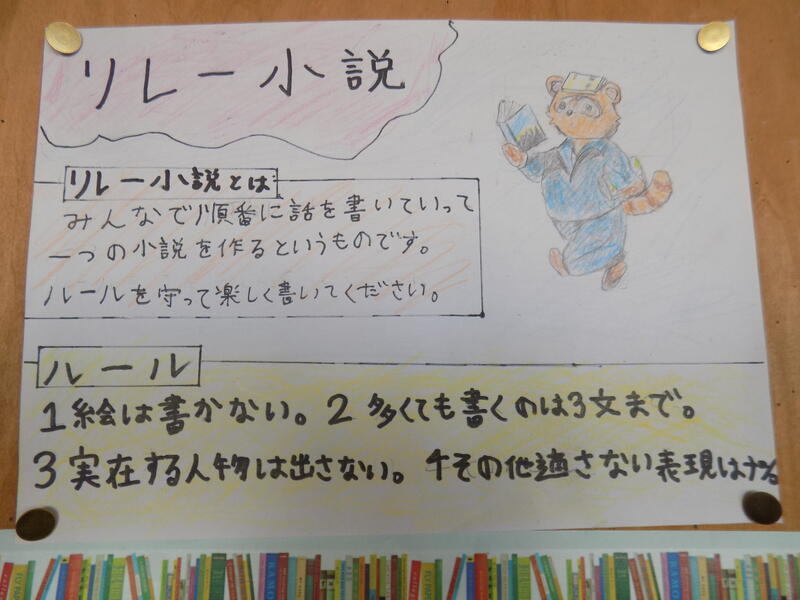 リレー小説
リレー小説とは
みんなで順番に話を書いていって
一つの小説を作るというものです。
ルールを守って楽しく書いてください。
ルール
1絵は書かない。2多くても書くのは3文まで。
3実在する人物は出さない。4その他適さない表現は